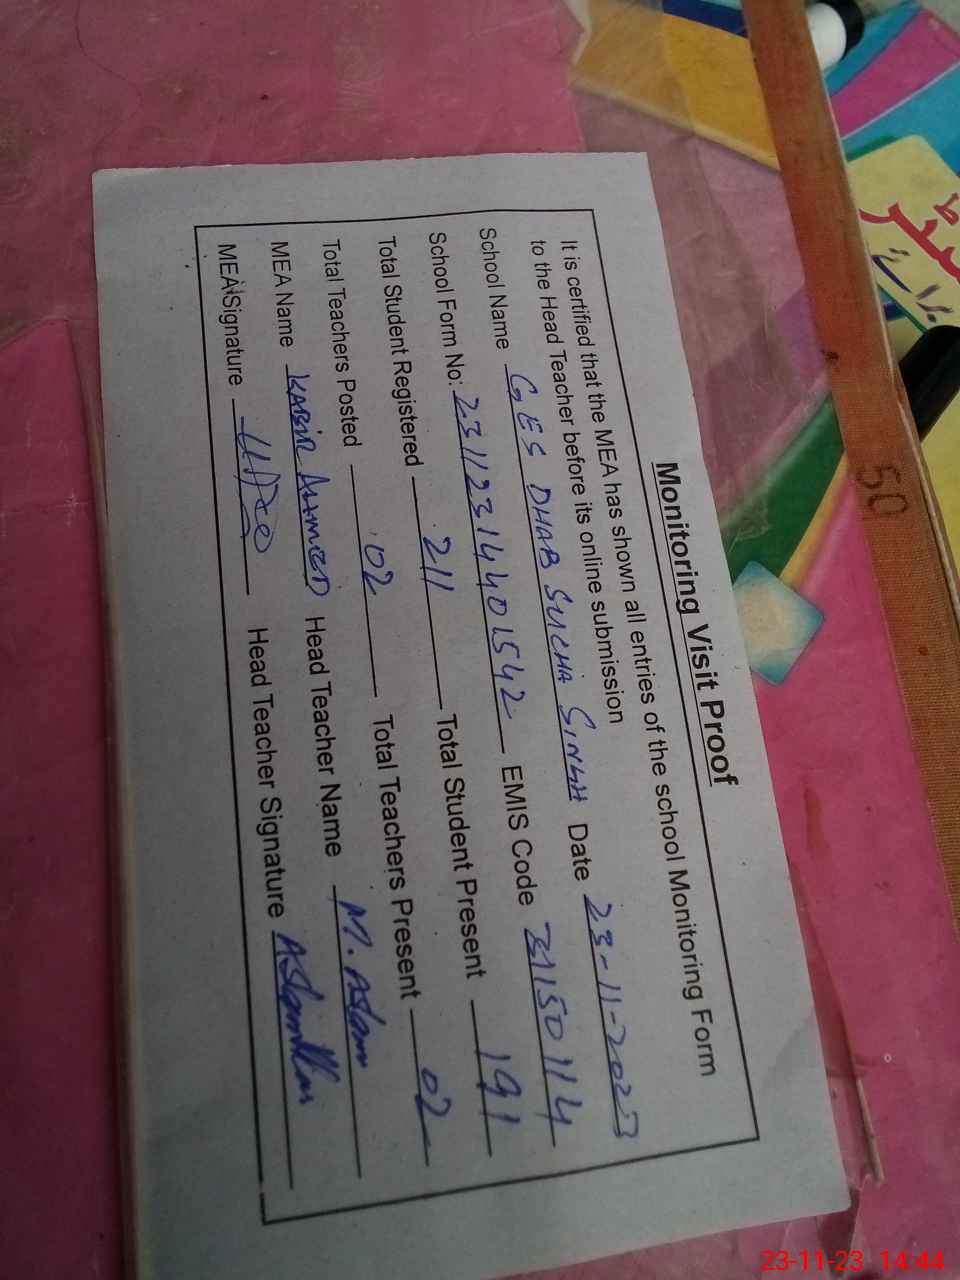 Monitoring Visit Proof
It is certified that the MEA has shown all entries of the school Monitoring Form
to the Head Teacher before its online submission
School Name GES DHAB SUCHA SINGH Date 23-11-2023
School Form No: 231123144401542 EMIS Code 31150114
Total Student Registered 211 Total Student Present 191
Total Teachers Posted 02 Total Teachers Present 02
MEA Name KABIR AHMED Head Teacher Name M. Aslam
MEA Signature Head Teacher Signature
50
برائے
23-11-23 14:44